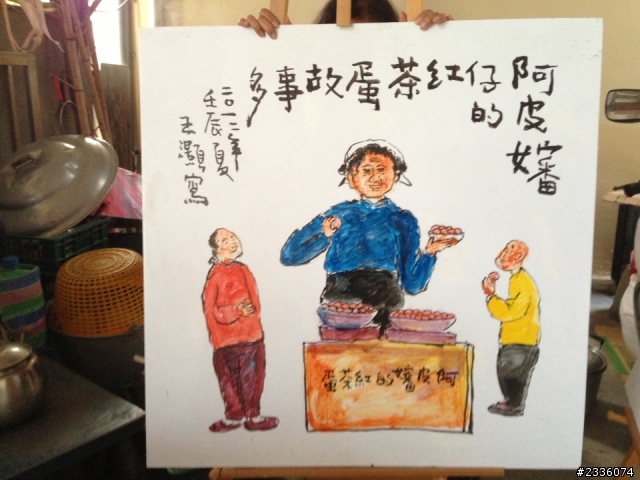 阿皮嬸
仔的
紅茶蛋故事多
二〇一二年
壬辰夏
王灝寫
阿皮嬸的紅茶蛋
#2336074